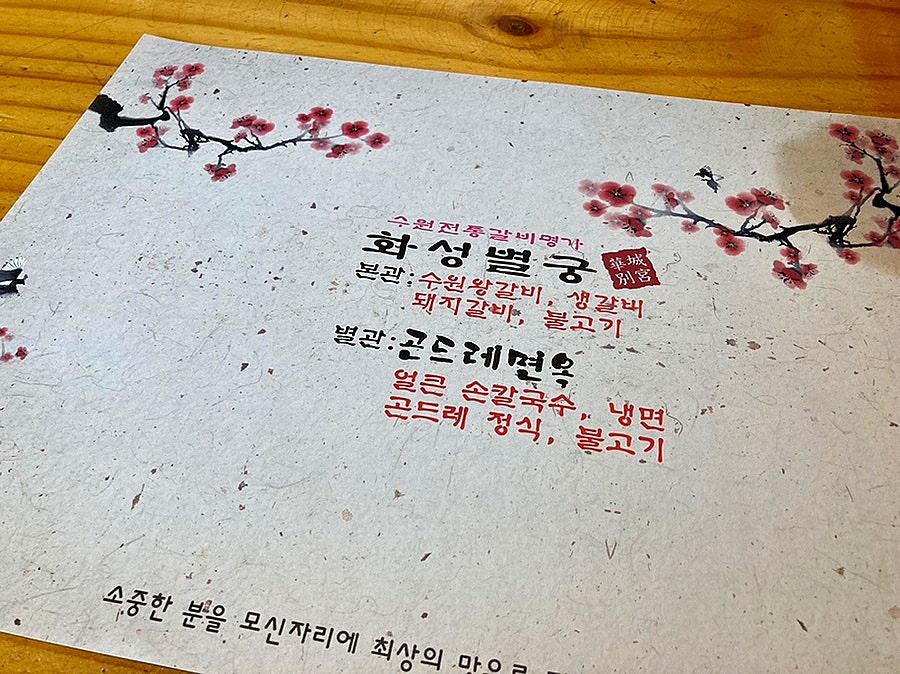 수원전통갈비명가
화성별궁
華城
別宮
본관:수원왕갈비, 생갈비
돼지갈비, 불고기
별관:곤드레면옥
얼큰 손칼국수, 냉면
곤드레 정식, 불고기
소중한 분을 모신자리에 최상의 맛으로